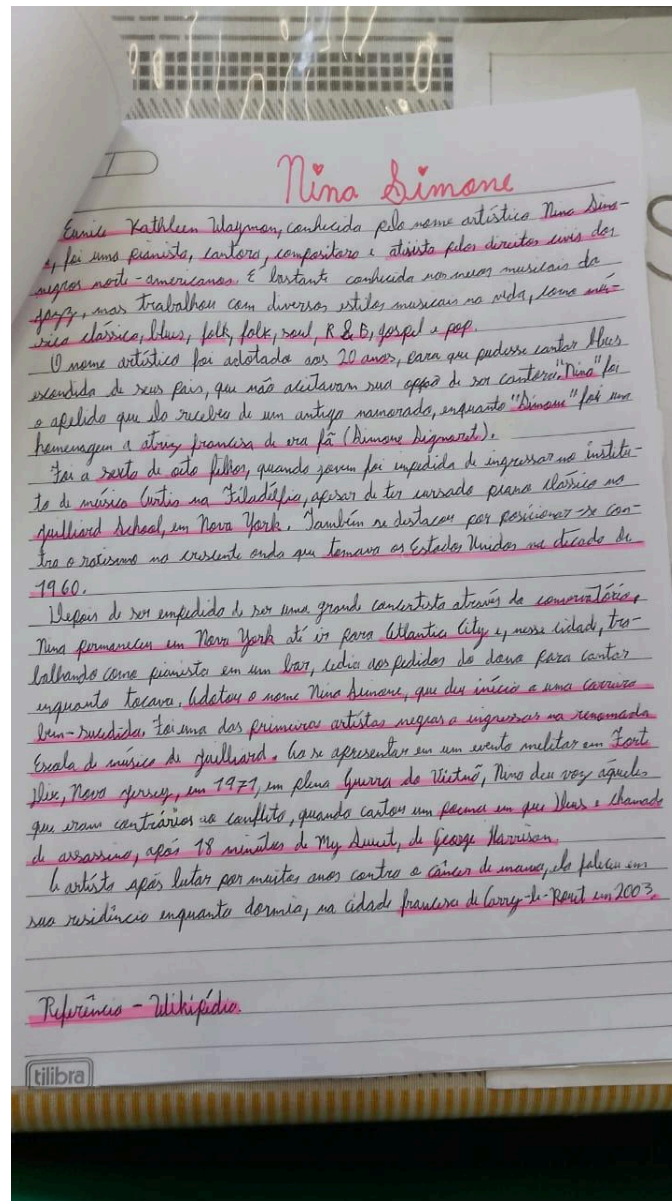 Nina Simone
Eunice Kathleen Waymon, conhecida pelo nome artístico Nina Simo-
, foi uma pianista, cantora, compositora e ativista pelos direitos civis dos
negros norte-americanos. É bastante conhecida nos meios musicais da
jazz, mas trabalhou com diversos estilos musicais na vida, como mú-
sica clássica, blues, folk, folk, soul, R & B, gospel e pop.
O nome artístico foi adotado aos 20 anos, para que pudesse cantar blues
escondida de seus pais, que não aceitavam sua opção de ser cantora. "Nina" foi
o apelido que ela recebeu de um antigo namorado, enquanto "Simone" foi um
homenagem a atriz francesa de era fã (Simone Signoret).
Foi a sexta de oito filhos, quando jovem foi impedida de ingressar no institu-
to de música Curtis na Filadélfia, apesar de ter cursado piano clássico na
Juilliard School, em Nova York. Também se destacou por posicionar-se con-
tra o racismo na crescente onda que tomava os Estados Unidos na década de
1960.
Depois de ser empedida de ser uma grande concertista através da conservatória,
Nina permaneceu em Nova York até ir para Atlantic City e, nessa cidade, tra-
balhando como pianista em um bar, cedia aos pedidos do dono para cantar
enquanto tocava. Adotou o nome Nina Simone, que deu início a uma carreira
bem-sucedida. Foi uma das primeiras artistas negras a ingressar na renomada
Escola de música de Juilliard. Ao se apresentar em um evento militar em Fort
Dix, Nova Jersey, em 1971, em plena Guerra do Vietnã, Nina deu voz àqueles
que eram contrários ao conflito, quando cantou um poema em que Deus e chamado
de assassino, após 18 minutos de My Sweet, de George Harrison.
A artista após lutar por muitos anos contra o câncer de mama, ela faleceu em
sua residência enquanto dormia, na cidade francesa de Carry-le-Rouet em 2003.
Referência - Wikipédia.
tilibra